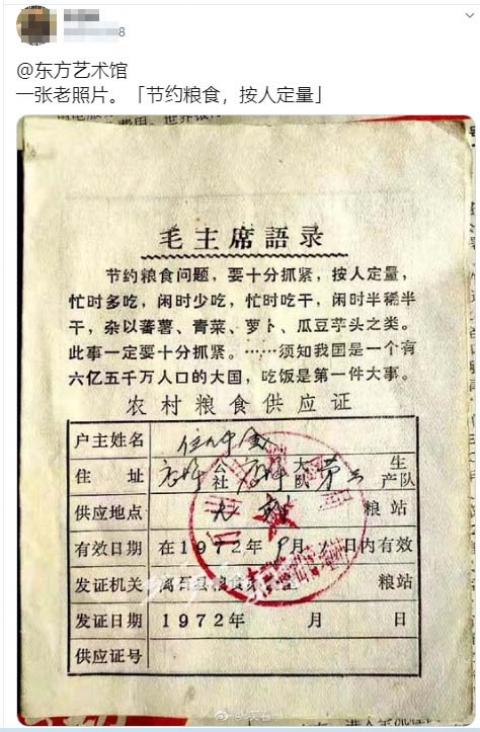 8
@东方艺术馆
一张老照片。「节约粮食，按人定量」
毛主席語录
节约粮食问题，要十分抓紧，按人定量，
忙时多吃，闲时少吃，忙时吃干，闲时半稀半
干，杂以蕃薯、青菜、萝卜、瓜豆芋头之类。
此事一定要十分抓紧。……须知我国是一个有
六亿五千万人口的大国，吃饭是第一件大事。
农村粮食供应证
户主姓名
住址 公社 大队 生产队
供应地点 粮站
有效日期 在1972年9月 日内有效
发证机关 离石县粮食 粮站
发证日期 1972年 月 日
供应证号